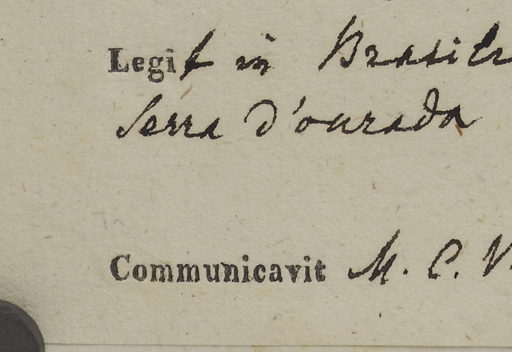 Legit in Brasile
Serra d'ourada
Communicavit M. C. V.